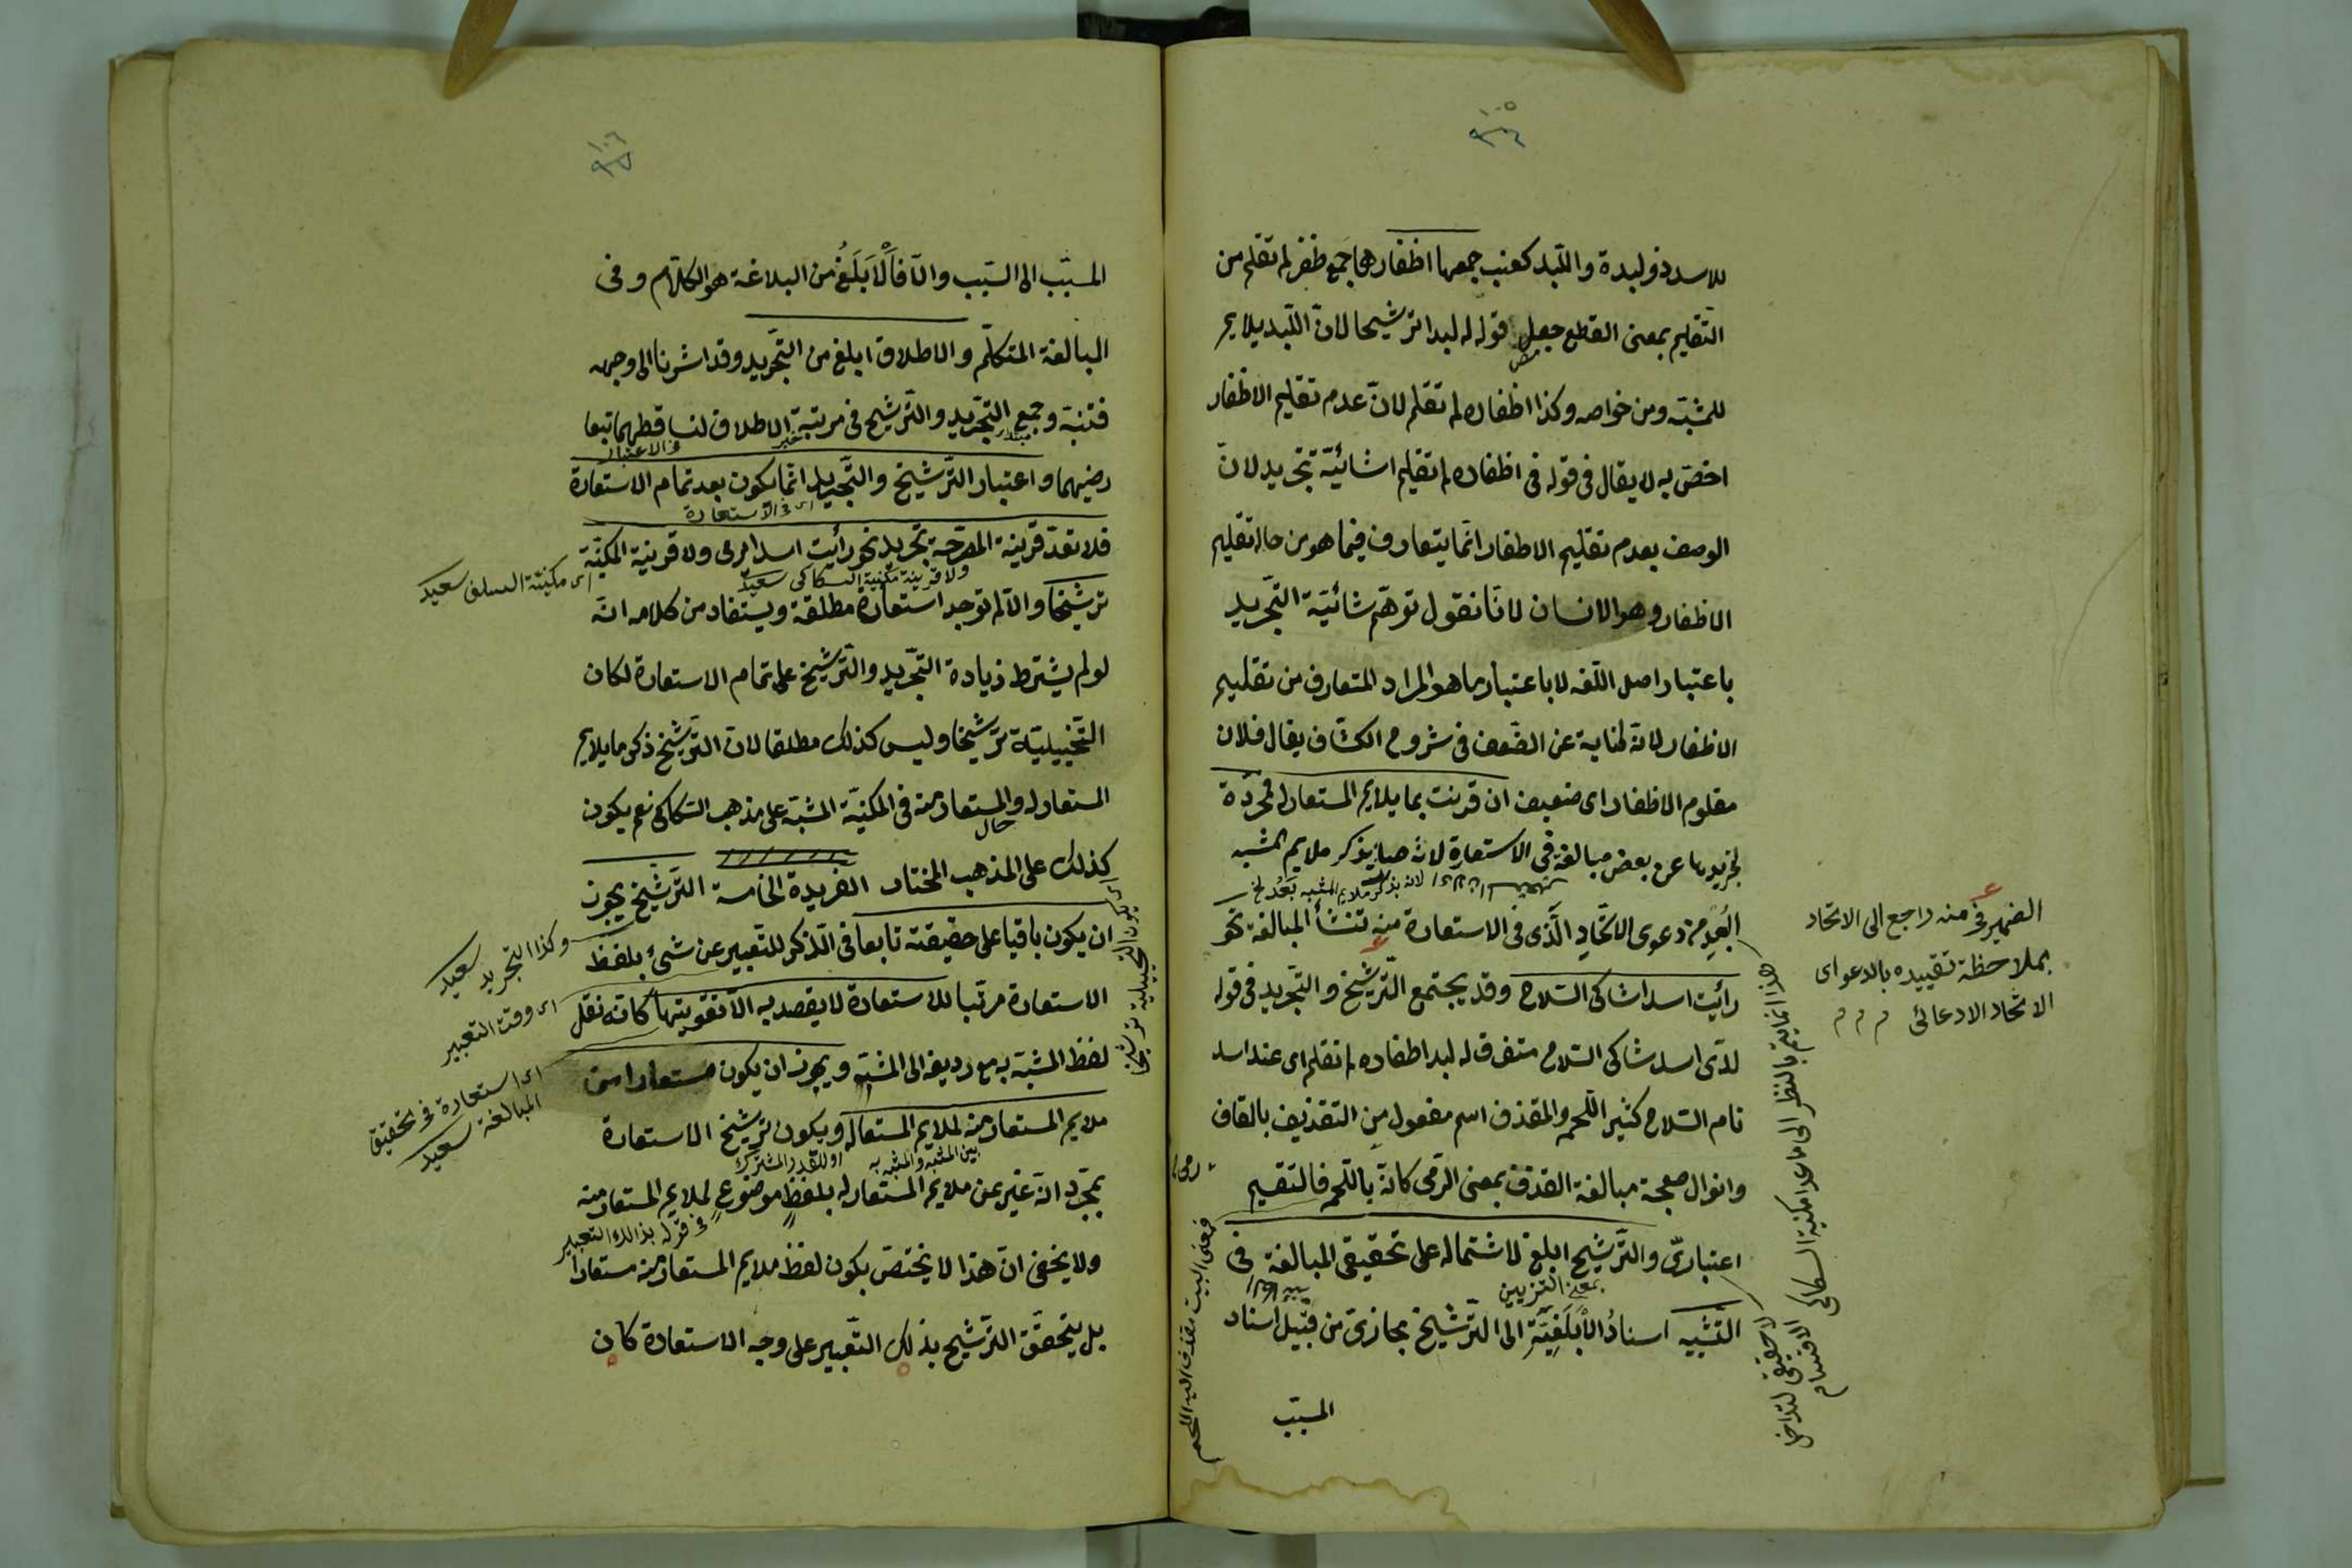 ١٠٥
للاسد ذو لبدة واللبد كعنب جمعها اظفارها جمع ظفر لم تقلم من
التقليم بمعنى القطع جعل قوله له لبد اترشيحا لانّ اللبد يلايم
للمشبّه ومن خواصه وكذا اظفاره لم تقلم لانّ عدم تقليم الاظفار
اخصّ به لا يقال فى قوله فى اظفاره لم تقليم اشائيّة تجريد لانّ
الوصف بعدم تقليم الاظفار انّما يتعارف فيما هو من حاله تقليم
الاظفار وهو الانسان لانّا نقول توهّم شائيّة التّجريد
باعتبار اصل اللغه لا باعتبار ما هو المراد المتعارف من تقليم
الاظفار لانّه كناية عن الضّعف فى شروح الكشّاف يقال فلان
مقلوم الاظفار اى ضعيف ان قرنت بما يلايم المستعار له فمجرّدة
لتجريدها عن بعض مبالغة فى الاستعارة لانه صار يذكر ملايم المشبه
لانه بذكر ملايم المشبه بَعُد
البُعد من دعوى الاتّحاد الّذى فى الاستعارة منه تنشأ المبالغة نحو
رائيت اسدا شاكى السّلاح وقد يجتمع التّرشيح والتّجريد فى قوله
لدى اسد شاكى السّلاح متفرق له لبد اظفاره لم تقلم اى عند اسد
تام السّلاح كثير اللّحم والمقذف اسم مفعول من التقذيف بالقاف
وانوال معجمة مبالغة القذف بمعنى الرّمى كانّه باللّحم فالتقسيم
اعتباريّ والتّرشيح ابلغ لاشتماله على تحقيقى المبالغة فى
بمعنى التزيين
التّشبيه اسنادُ الأَبْلَغِيَّةِ الى التّرشيح مجازىّ من قبيل اسناد
المسبّب
الضمير فى منه راجع الى الاتحاد
بملاحظة تقييده بالدعوا اى
الاتحاد الادعائى م م م
هذا انما يتم بالنظر الى ما عدا مكنية السكاكى
لا حقيقى لتداخل الاقسام
رمى
فمعنى البيت مقذف اليه اللحم
١٠٦
المسبّب الى السّبب والّا فالْأَبْلَغُ من البلاغة هو الكلام وفى
المبالغة المتكلّم والاطلاق ابلغ من التّجريد وقد اشرنا الى وجهه
فتنبّه وجمع التّجريد والتّرشيح فى مرتبة الاطلاق لتساقطهما بتعا
مبتدا خبر و الاعتبار
رضيهما واعتبار التّرشيح والتّجريد انّما يكون بعد تمام الاستعارة
اى فى الاستعارة
فلا تعدّ قرينة المصرّحة تجريد نحو رأيت اسدا يرمى ولا قرينة المكنيّة
ولا قرينة مكنية السكاكى سعيد
ترشيحا والّا لم توجد استعارة مطلقة ويستفاد من كلامه انّه
لو لم يشترط زيادة التّجريد والتّرشيح على تمام الاستعارة لكان
التّخييليّة ترشيحا وليس كذلك مطلقا لانّ التّرشيح ذكر ما يلايم
المستعار له والمستعار منه فى المكنيّة المشبّه على مذهب السّكاكى نعم يكون
حال
كذلك على المذهب المختار الفريدة الخامسة التّرشيح يجوز
ان يكون باقيا على حقيقته تابعا فى الذّكر للتّعبير عن شئ بلفظ
الاستعارة مرتّبا للاستعارة لا يقصد به الّا تقويتها كانّه نقل
لفظ المشبّه به مع رديفه الى المشبّه ويجوز ان يكون مستعارا من
ملايم المستعار منه لملايم المستعار له ويكون ترشيح الاستعارة
بين المشبه والمشبه به او للقدر المشترك
بمجرّد انّه عبّر عن ملايم المستعار له بلفظٍ موضوعٍ لملايم المستعار منه
فى قوله بذالك التعبير
ولا يخفى انّ هذا لا يختصّ بكون لفظ ملايم المستعار منه مستعارا
بل يتحقّق التّرشيح بذلك التّعبير على وجه الاستعارة كان
اى مكنيّة السلف سعيد
اى يكون التخييلية ترشيحا
وكذا التجريد سعيد
اى وقت التعبير
اى استعارة فى تحقيق
المبالغة سعيد